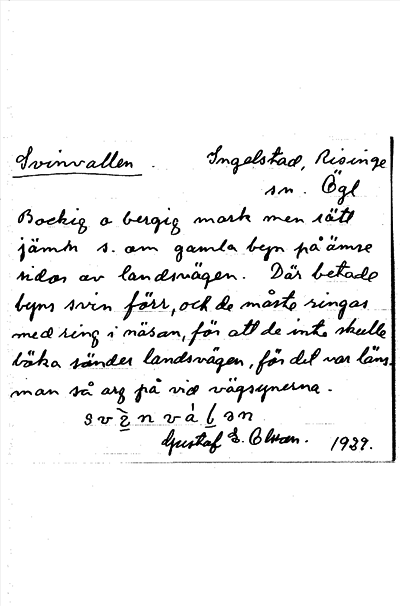 Svinvallen. Ingelstad, Risinge
sn. Ögl
Backig o bergig mark men rätt
jämn s. om gamla byn på ömse
sidor av landsvägen. Där betade
byns svin förr, och de måste ringas
med ring i näsan, för att de inte skulle
böka sönder landsvägen, för det var läns-
man så arg på vid vägsynerna.
Gustaf E. Olson. 1939.